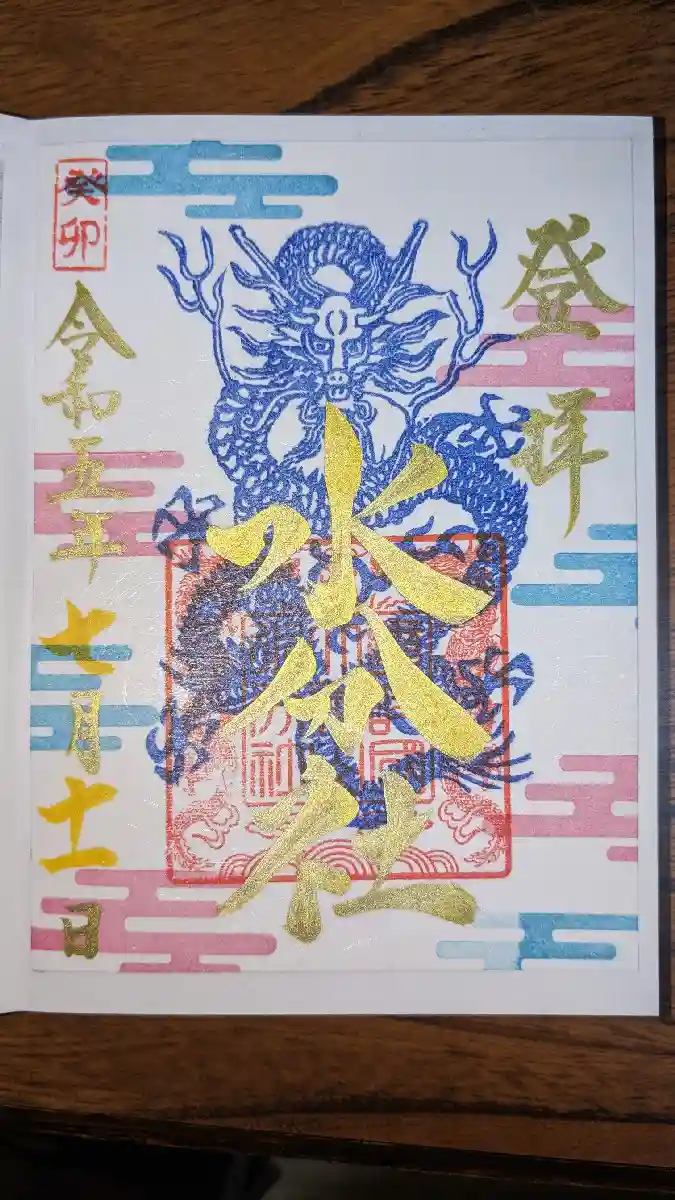 登拝
水分社
癸卯
令和五年七月十一日